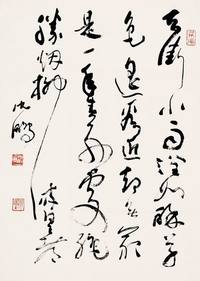 天街小雨潤如酥草
色遥看近却無最
是一年春好處絕
勝烟柳滿皇都
沈鵬